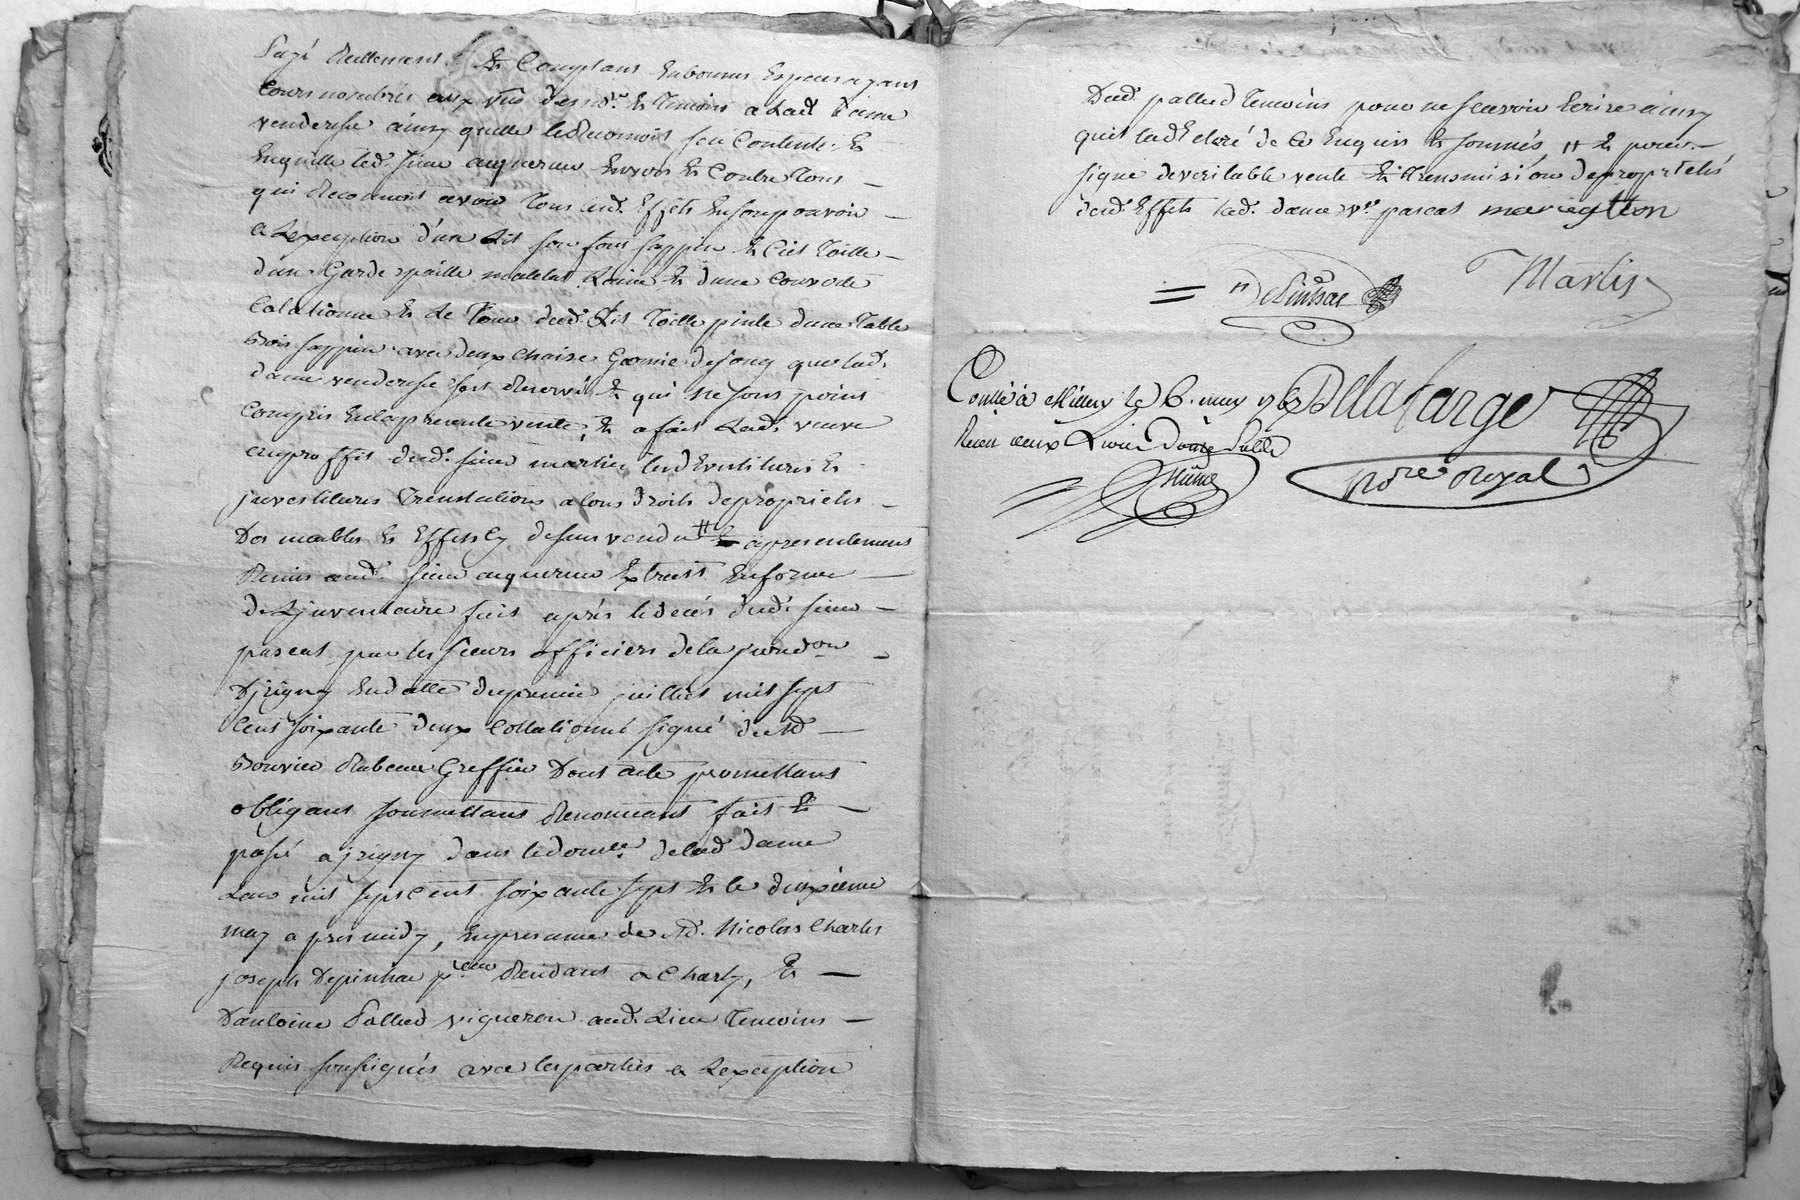 payé Reellement & Comptant en bonnes Especes ayant
Cours nombrés aux vus des nore. & Temoins a Lade. dame
venderesse ainsy quelle le Reconnoit son Contente. &
quitte led. sieur acquereur Envers & Contre Tous —
qui Reconnoit avoir Tous lesd. Effets En son pouvoir —
a Lexception d'un Lit son fond sappin & Ciel Toille —
d'un Garde paille mattelat Laine & d'une Couverte
Catalonne & Le Tour dud. Lit Toille pinte d'une Table
Bois sappin avec deux Chaise Garnie de jong que lad.
dame venderesse sest Reservée & qui ne sont point
Compris En la presente vente, & a fait Lade. veuve
au proffit dud. sieur martin les devestitures &
jnvestitures Translations a tous droits de proprietes —
Des meubles & Effets Cy dessus vendu # & a presentement
Remis aud. sieur acquereur Extrait En forme —
de L'jnventaire fait après le deces dud. sieur —
pascal par les sieurs officiers de la juridon —
D'jrigny En datte du premier juillet mil sept
Cent soixante deux Collationné signé dud. —
Bouvier Greffier Dont acte promettant
obligeant soumettant Renonceant fait & —
passé a jrigny dans le domlle. de lad. dame
Lan mil sept Cent soixante sept & le deuxieme
may apres midy, En presence de Nicolas Charles
joseph Depinhac Residant a Charly, & —
D'antoine Pallud vigneron aud. Lieu Temoins —
Requis soussignés avec les parties a Lexception
Dud. pallud Temoins pour ne scavoir Ecrire ainsy
quil la declaré de Ce Enquis & sommés, # & pour —
signe de veritable vente & Transmision de proprietés
desd. Effets lad. dame ve. pascal marietton
Depinhac Martin
Conllé a Millery le 6. may 1767 Delafarge
Receu deux Livres Douze Sols
nore Royal